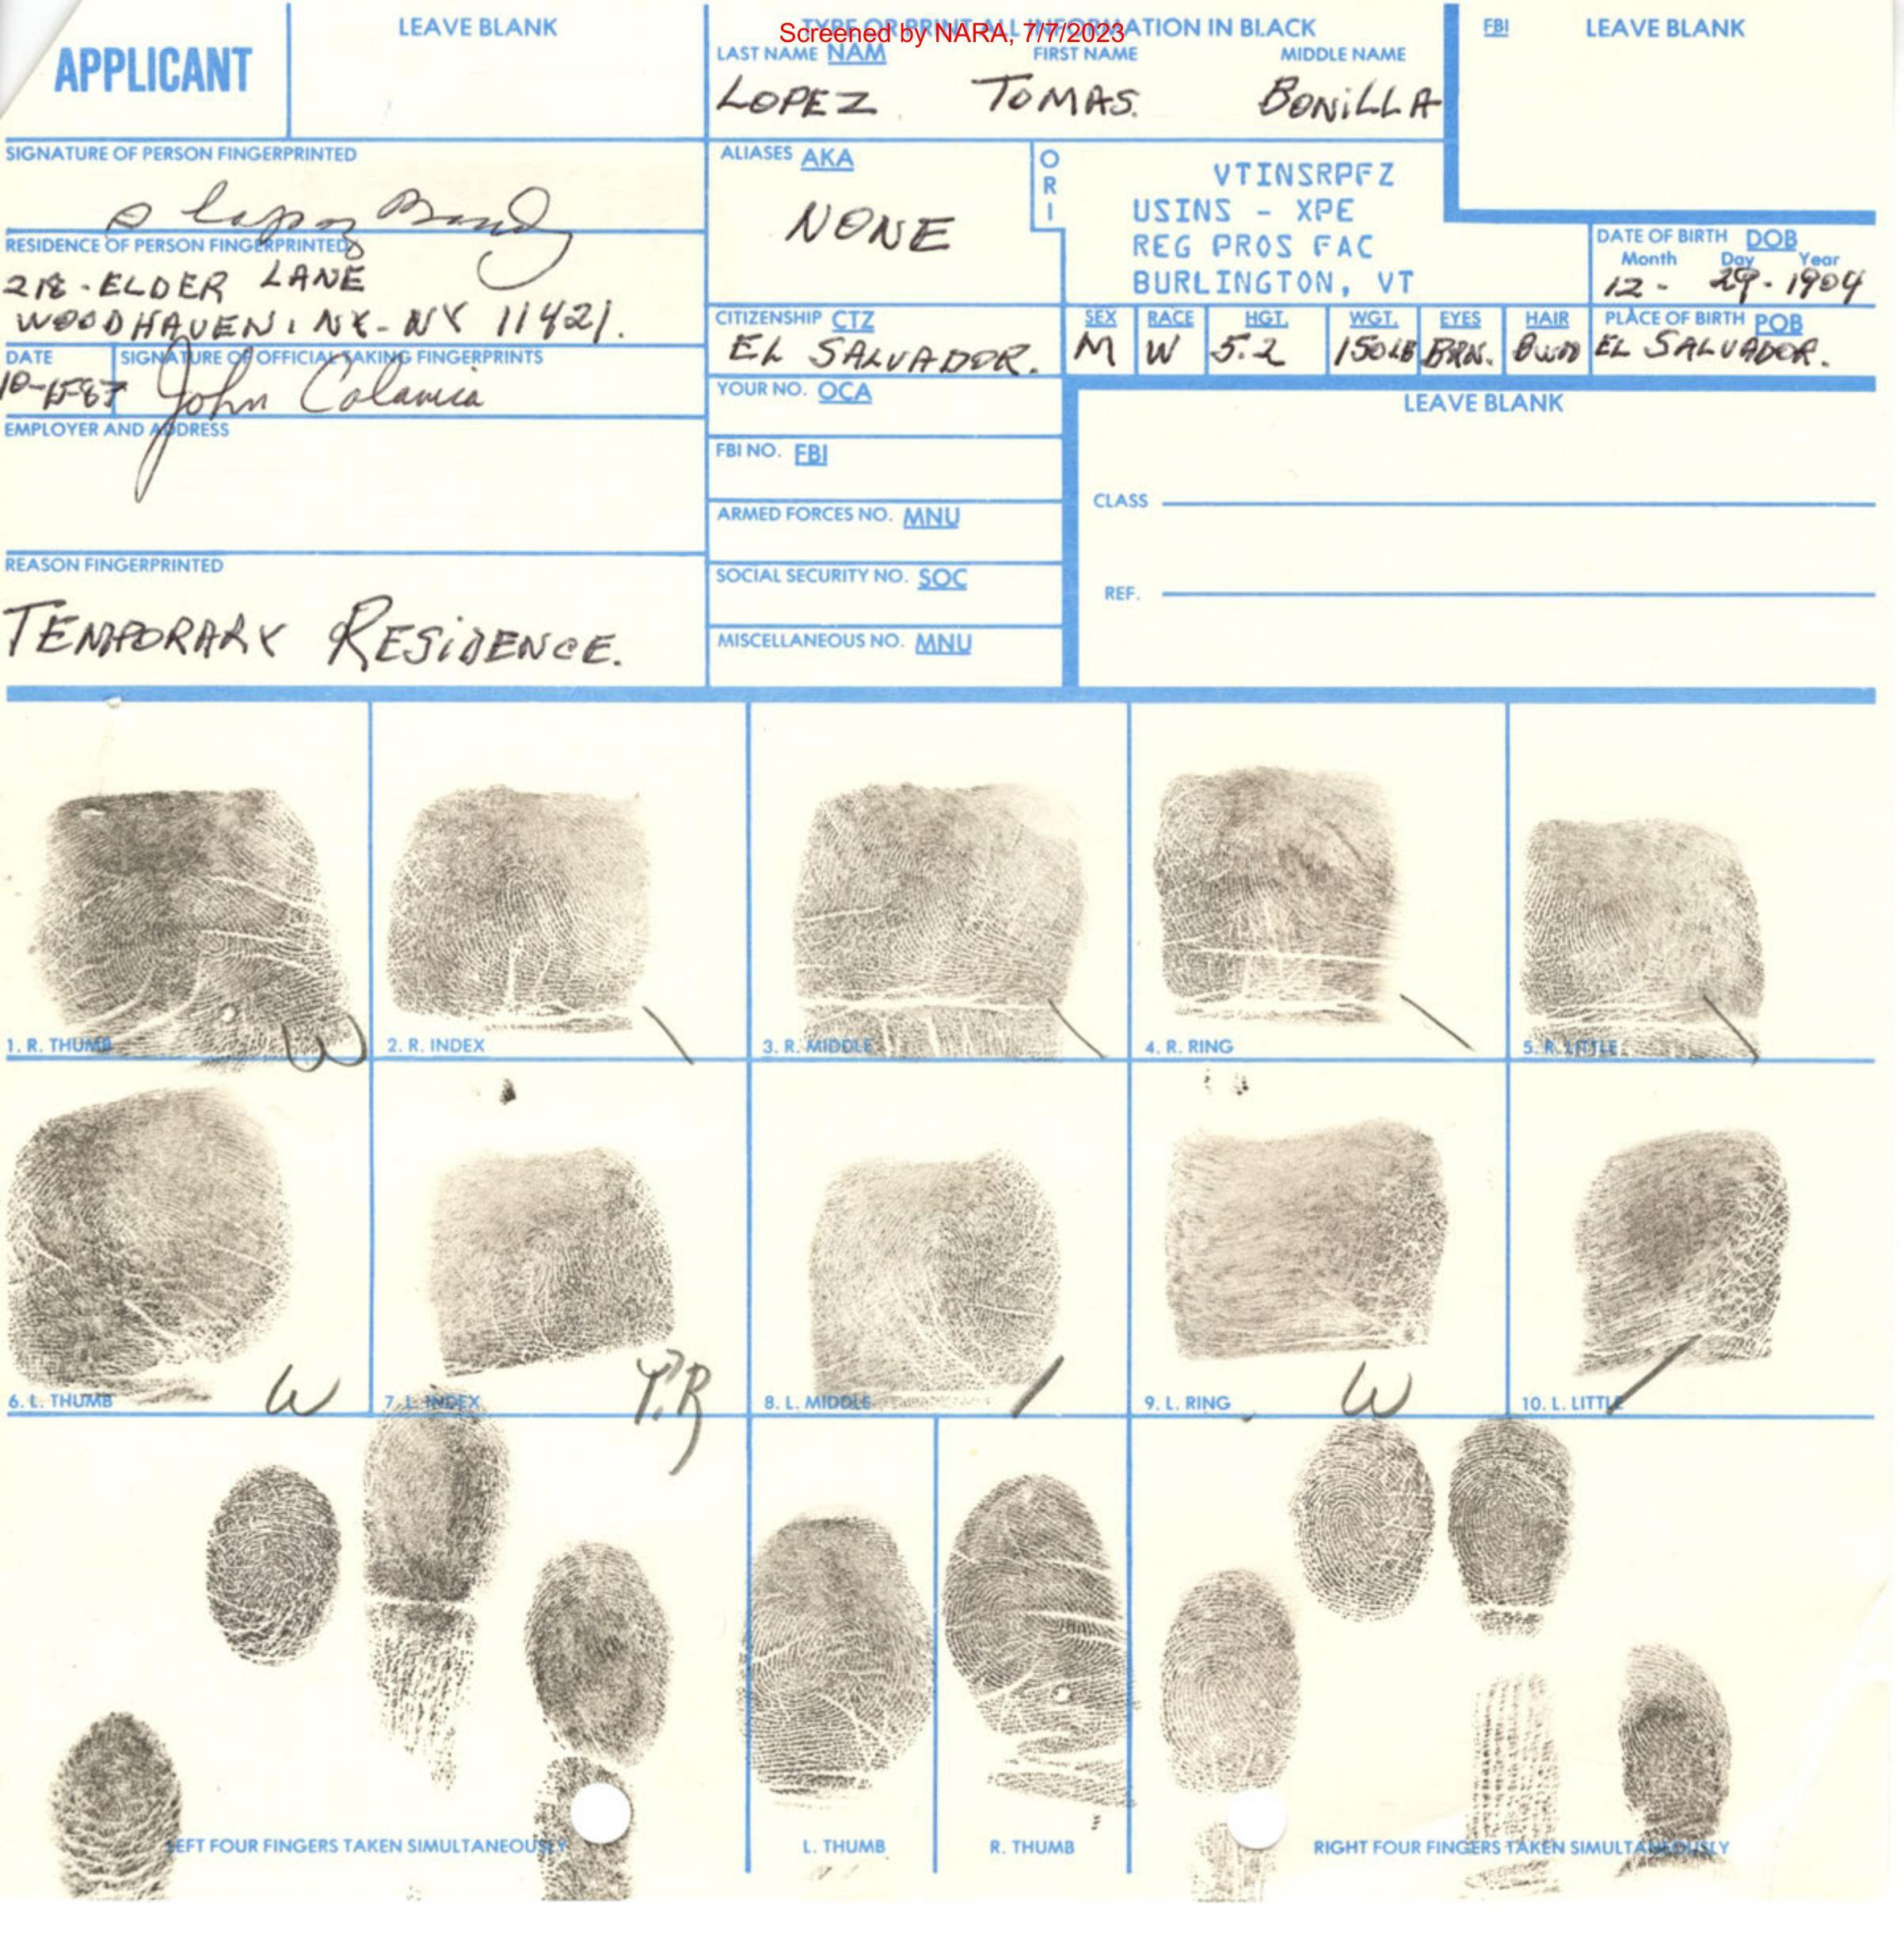 APPLICANT
LEAVE BLANK
TYPE OR PRINT ALL INFORMATION IN BLACK
Screened by NARA, 7/7/2023
FBI LEAVE BLANK
LAST NAME NAM FIRST NAME MIDDLE NAME
LOPEZ TOMAS. BONILLA
SIGNATURE OF PERSON FINGERPRINTED
ALIASES AKA
NONE
ORI
VTINSRPFZ
USINS - XPE
REG PROS FAC
BURLINGTON, VT
RESIDENCE OF PERSON FINGERPRINTED
218-ELDER LANE
WOODHAVEN, NY-NY 11421.
DATE OF BIRTH DOB
Month Day Year
12- 29-1904
CITIZENSHIP CTZ
EL SALVADOR.
SEX RACE HGT. WGT. EYES HAIR
M W 5.2 150LB BRN.
PLACE OF BIRTH POB
EL SALVADOR.
DATE SIGNATURE OF OFFICIAL TAKING FINGERPRINTS
10-15-87 John
YOUR NO. OCA
LEAVE BLANK
EMPLOYER AND ADDRESS
FBI NO. FBI
CLASS
ARMED FORCES NO. MNU
REASON FINGERPRINTED
TEMPORARY RESIDENCE.
SOCIAL SECURITY NO. SOC
REF.
MISCELLANEOUS NO. MNU
1. R. THUMB W
2. R. INDEX \
3. R. MIDDLE \
4. R. RING \
5. R. LITTLE \
6. L. THUMB W
7. L. INDEX
8. L. MIDDLE /
9. L. RING W
10. L. LITTLE /
LEFT FOUR FINGERS TAKEN SIMULTANEOUSLY
L. THUMB
R. THUMB
RIGHT FOUR FINGERS TAKEN SIMULTANEOUSLY